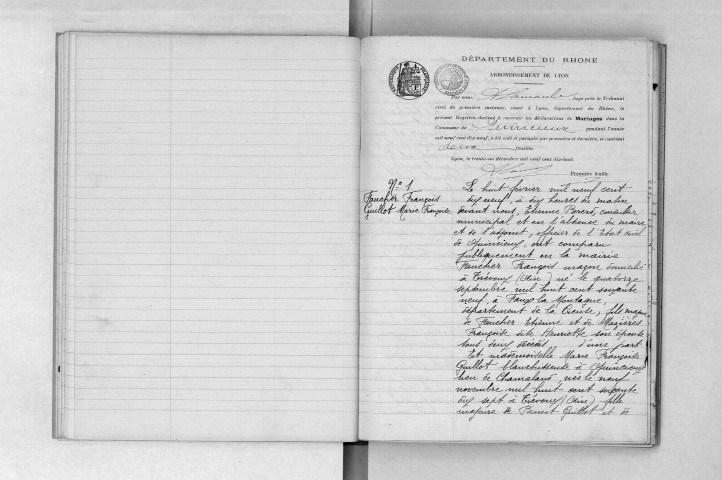 DÉPARTEMENT DU RHONE
ARRONDISSEMENT DE LYON
Par nous, Juge près le Tribunal
civil de première instance, séant à Lyon, département du Rhône, le
présent Registre, destiné à recevoir les déclarations de Mariages dans la
Commune de Quincieux pendant l'année
mil neuf cent dix-neuf, a été coté et paraphé par première et dernière, et contient
feuilles.
Lyon, le trente-un décembre mil neuf cent dix-huit.
Première feuille
N° 1
Faucher François
Guillot Marie Françoise
Le huit février mil neuf cent
dix neuf, à dix heures du matin
devant nous, Etienne conseiller
municipal et en l'absence du maire
et de l'adjoint, officier de l'Etat civil
de Quincieux, ont comparu
publiquement en la mairie
Faucher François maçon domicilié
à Trévoux (Ain) né le quatorze
septembre mil huit cent soixante
neuf, à Faux la Montagne,
département de la Creuse, fils majeur
de Faucher Etienne et de Mazières
Françoise dite Henriette son épouse
tous deux décédés d'une part
Et mademoiselle Marie Françoise
Guillot blanchisseuse à Quincieux
lieu de Chamaland, née le neuf
novembre mil huit cent soixante
dix sept à Trévoux (Ain) fille
majeure de Benoit Guillot et de